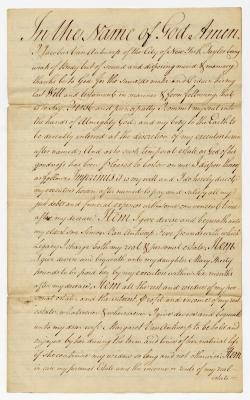 In the Name of God Amen.
I Jacobus Van Antwerp of the City of New York Taylor being
weak of Body but of sound and disposing mind & memory
thanks be to God for the same do make and Ordain this my
last Will and Testament in manner & form following, that
is to Say, First and principally I commit my Soul into
the hands of Almighty God and my body to the Earth to
be decently interred at the discretion of my executors herein
after named; And as to such temporal estate as God of his
goodness has been pleased to bestow on me I dispose thereof
as follows Imprimis it is my will and I do hereby direct
my executors herein after named to pay and satisfy all my
just debts and funeral expences within convenient time
after my decease. Item I give devise and bequeath unto
my eldest son Simon Van Antwerp five pounds with which
Legacy I charge both my real & personal estate. Item
I give devise and bequeath unto my daughter Mary thirty
pounds to be paid by my executors within six months
after my decease. Item all the rest and residue of my per-
sonal estate and the interest profit and incomes of my real
estate whatsoever & wheresoever I give devise and bequeath
unto my dear wife Margaret Van Antwerp to be held and
enjoyed by her during the term and time of her natural life
if she continues my widow so long and not otherwise Item
in case my personal estate and the income or rents of my real
estate